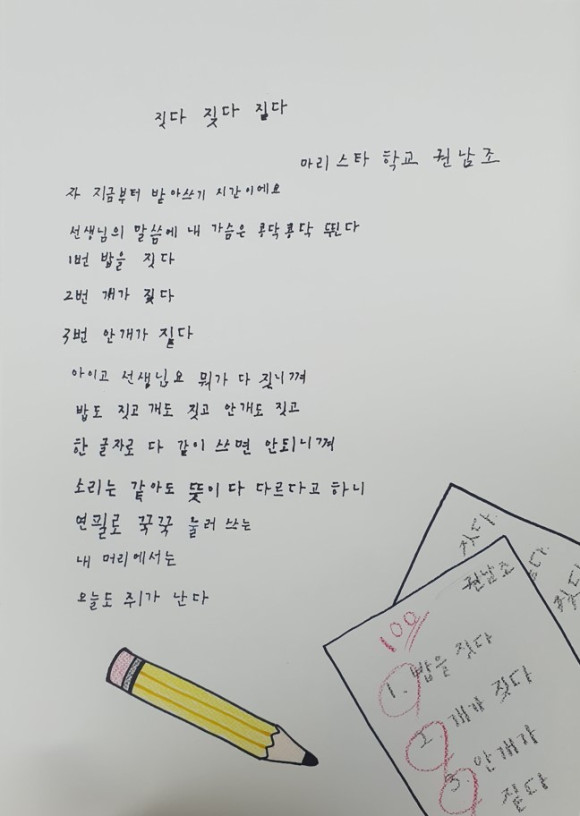 짓다 짖다 짙다
마리스타 학교 권남조
자 지금부터 받아쓰기 시간이에요
선생님의 말씀에 내 가슴은 콩닥콩닥 뛴다
1번 밥을 짓다
2번 개가 짖다
3번 안개가 짙다
아이고 선생님요 뭐가 다 짖니껴
밥도 짖고 개도 짖고 안개도 짖고
한 글자로 다 같이 쓰면 안되니껴
소리는 같아도 뜻이 다 다르다고 하니
연필로 꾹꾹 눌러 쓰는
내 머리에서는
오늘도 쥐가 난다
짓다.
권남조
100
1. 밥을 짓다
2. 개가 짖다
3. 안개가
짙다